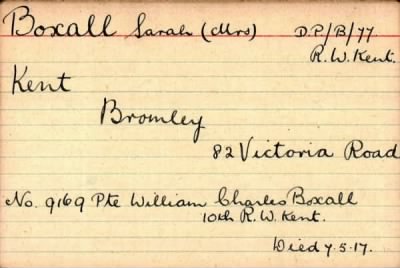 Boxall Sarah (Mrs) D.P/B/77
R.W. Kent.
Kent
Bromley
82 Victoria Road
No. 9169 Pte William Charles Boxall
10th R.W. Kent.
Died 7.5.17.